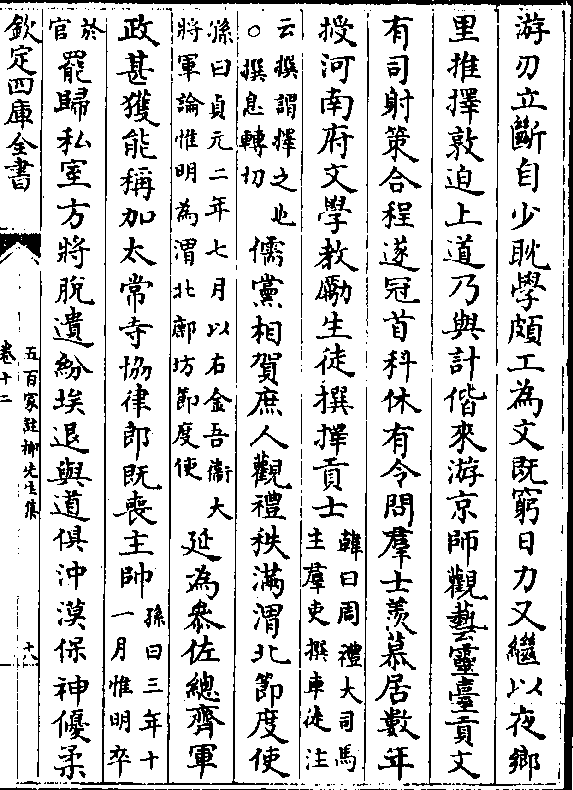 游刃立斷自少耽學頗工為文既窮日力又繼以夜鄉
里推擇敦迫上道乃與計偕來游京師觀藝靈臺貢文
有司射策合程遂冠首科休有令問羣士羨慕居數年
授河南府文學教勵生徒撰擇貢士韓曰周禮大司馬主羣吏撰車徒注
云撰謂擇之也○撰息轉切儒黨相賀庶人觀禮秩滿渭北節度使
孫曰貞元二年七月以右金吾衞大將軍論惟明為渭北鄜坊節度使延為叅佐總齊軍
政甚獲能稱加太常寺協律郎既喪主帥孫曰三年十一月惟明卒
於官罷歸私室方將脫遺紛埃退與道俱沖漠保神優柔
欽定四庫全書
五百家註柳先生集
卷十二
十八